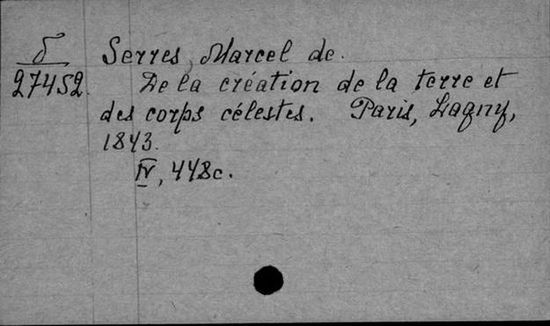 δ
27452.
Serres, Marcel de.
De la création de la terre et
des corps célestes. Paris, Lagny,
1843.
IV, 448c.